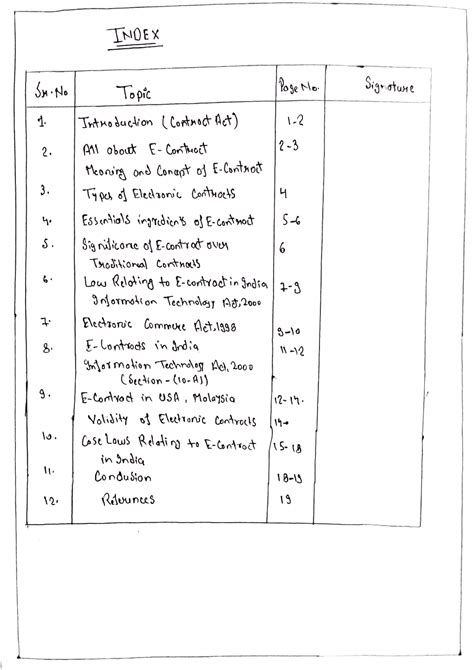 INDEX
Sr.No Topic Page No. Signature
1. Introduction (Contract Act) 1-2
2. All about E-Contract 2-3
Meaning and Concept of E-Contract
3. Types of Electronic Contracts 4
4. Essentials ingredients of E-contract 5-6
5. Significance of E-contract over 6
Traditional Contracts
6. Law Relating to E-contract in India 7-9
Information Technology Act, 2000
7. Electronic Commerce Act, 1998 9-10
8. E-Contracts in India 11-12
Information Technology Act, 2000
(Section-(10-A))
9. E-Contract in USA, Malaysia 12-14.
Validity of Electronic Contracts 14-
10. Case Laws Relating to E-Contract 15-18
in India
11. Conclusion 18-19
12. References 19